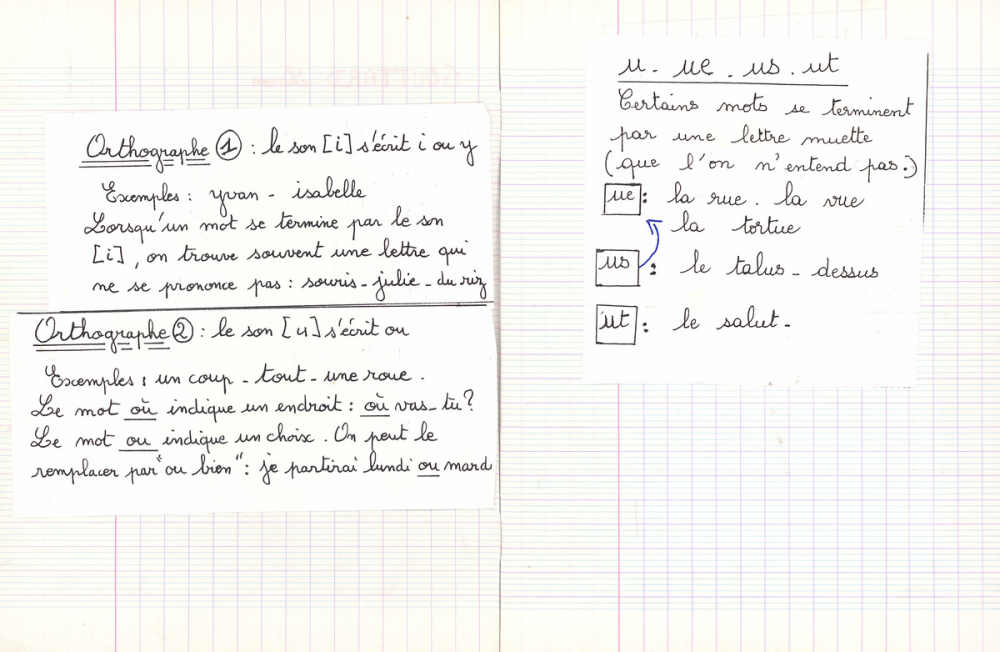 Orthographe 1 : le son [i] s'écrit i ou y
Exemples : yvan - isabelle
Lorsqu'un mot se termine par le son
[i], on trouve souvent une lettre qui
ne se prononce pas : souris - julie - du riz
Orthographe 2 : le son [u] s'écrit ou
Exemples : un coup - tout - une roue.
Le mot où indique un endroit : où vas-tu?
Le mot ou indique un choix. On peut le
remplacer par "ou bien" : je partirai lundi ou mard
u. ue. us. ut
Certains mots se terminent
par une lettre muette
(que l'on n'entend pas.)
ue : la rue. la vue
la tortue
us : le talus - dessus
ut : le salut.